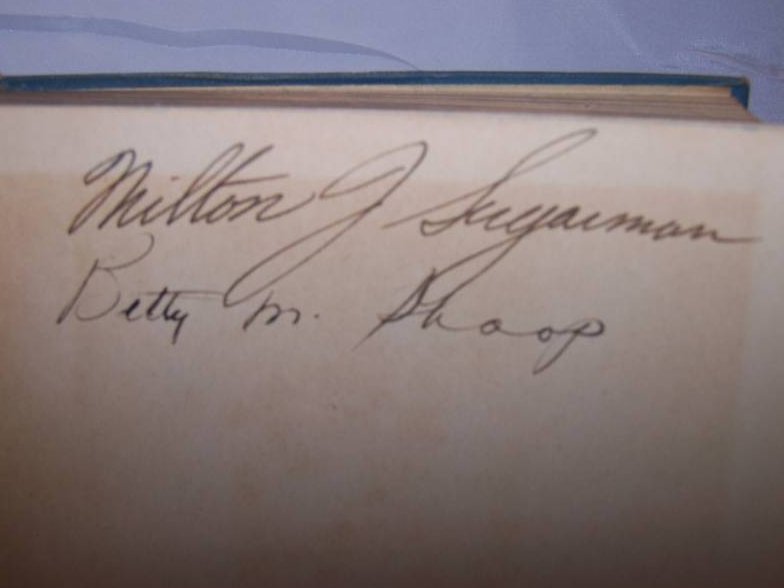 Milton J Sugarman
Betty M. Shoop